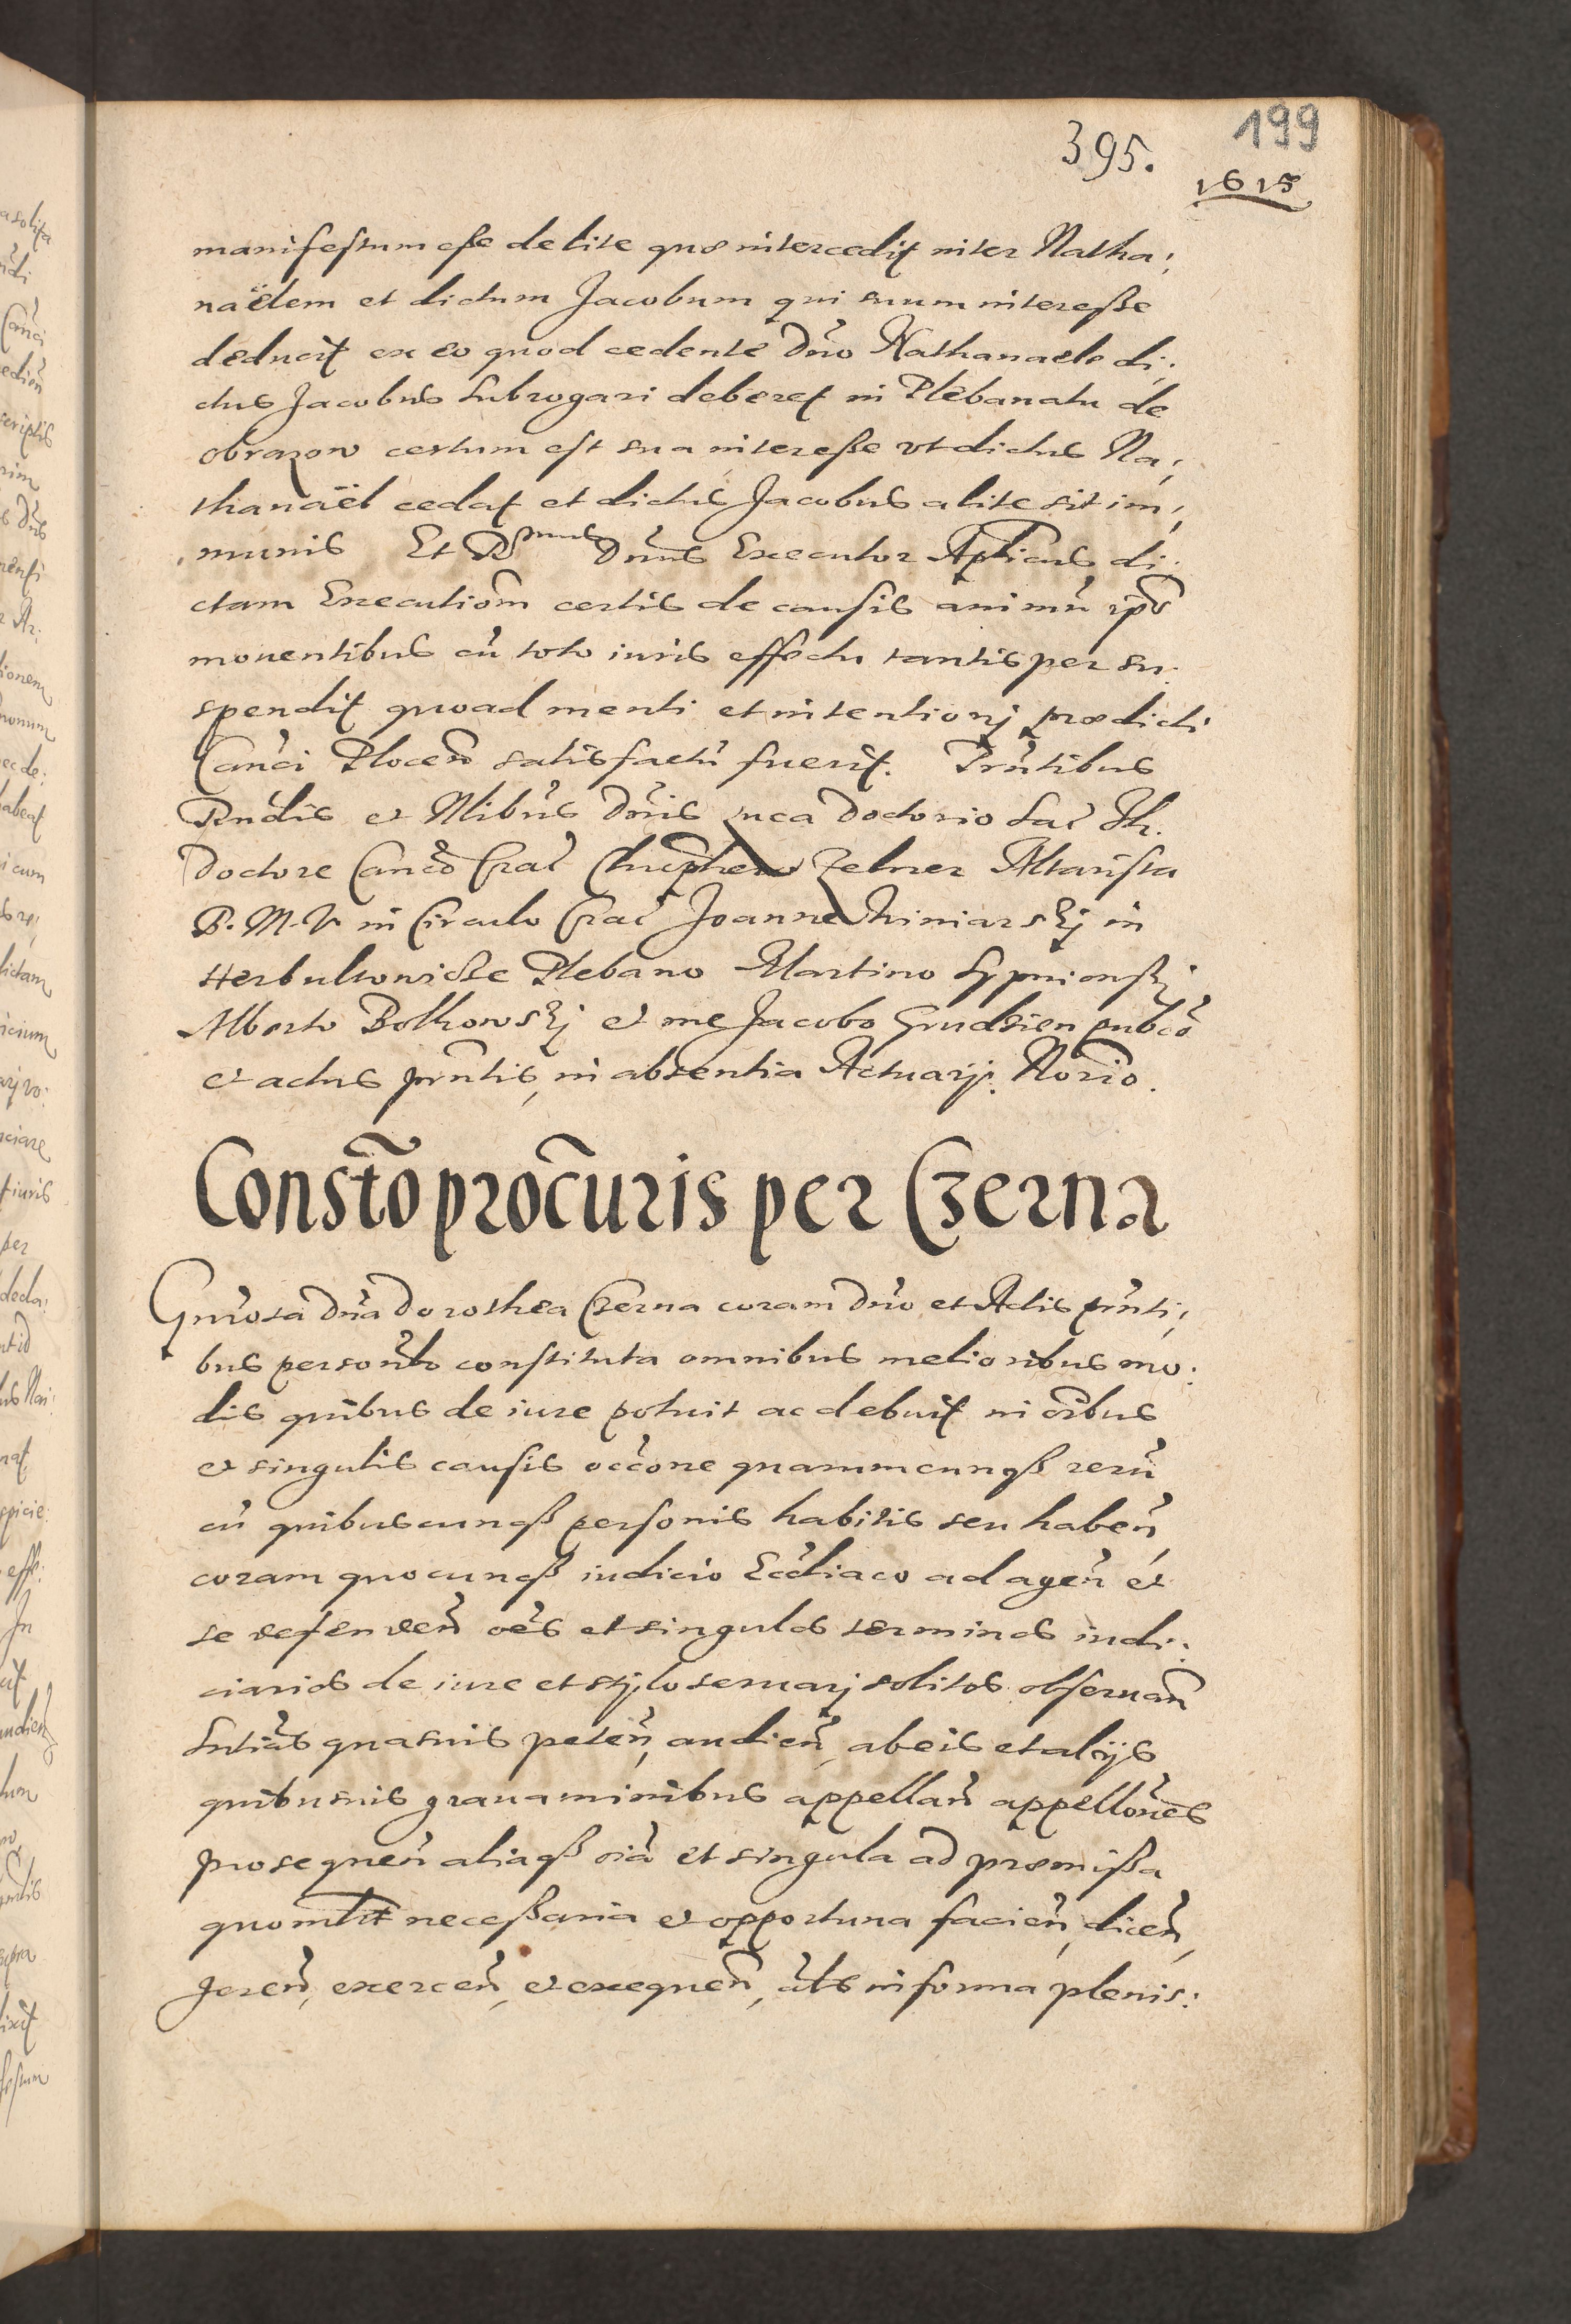 199
395.
1615
manifestum esse de lite quæ intercedit inter Natha:
naëlem et dictum Jacobum qui suum interesse
deducit ex eo quod cedente Dño Nathanaele di:
ctus Jacobus subrogari deberet in Plebanatu de
obrazow certum est sua interesse vt dictus Na:
thanaël cedat et dictus Jacobus a lite sit im:
munis Et Rssmus Dñus Executor Aplicus di:
ctam Executiom certis de causis animũ ipõ
mouentibus cũ toto iuris effectu tantisper su:
spendit quoad menti et intentionj prædicti
Canci Plocen satisfactũ fuerit. Prñtibus
Rndis et Nlibus Dñis Luca Doctorio Sac Th.
Doctore Canco Crac Chrischero Zelner Altarista
B. M. V. in Circulo Crac Joanne Winiarskj in
Herbultowice Plebano Martino Sypniowskj
Alberto Bolkowskj et me Jacobo Grudzien pubco
et actus prñtis, in absentia Actuarij. Norio.
Constõ procuris per Czerna
Gnrosa Dña Dorothea Czerna coram Dño et Actis prñti:
bus personlr constituta omnibus melioribus mo:
dis quibus de iure potuit ac debuit in oibus
et singulis causis occõne quarumcunqß rerũ
cũ quibuscunqß personis habitis seu haben,
coram quocunqß iudicio Eccliaco ad agen et
se defenden oes et singulos terminos iudi:
ciarios de iure et stylo seruarj solitos obseruan
Sntias quasuis peten, audien, ab eis et alijs
quibusuis grauaminibus appellan appellones
prosequen aliaqß oia et singula ad præmissa
quomlt necessaria et opportuna facien, dicen,
geren, exercen, et exequen, als in forma plenis: